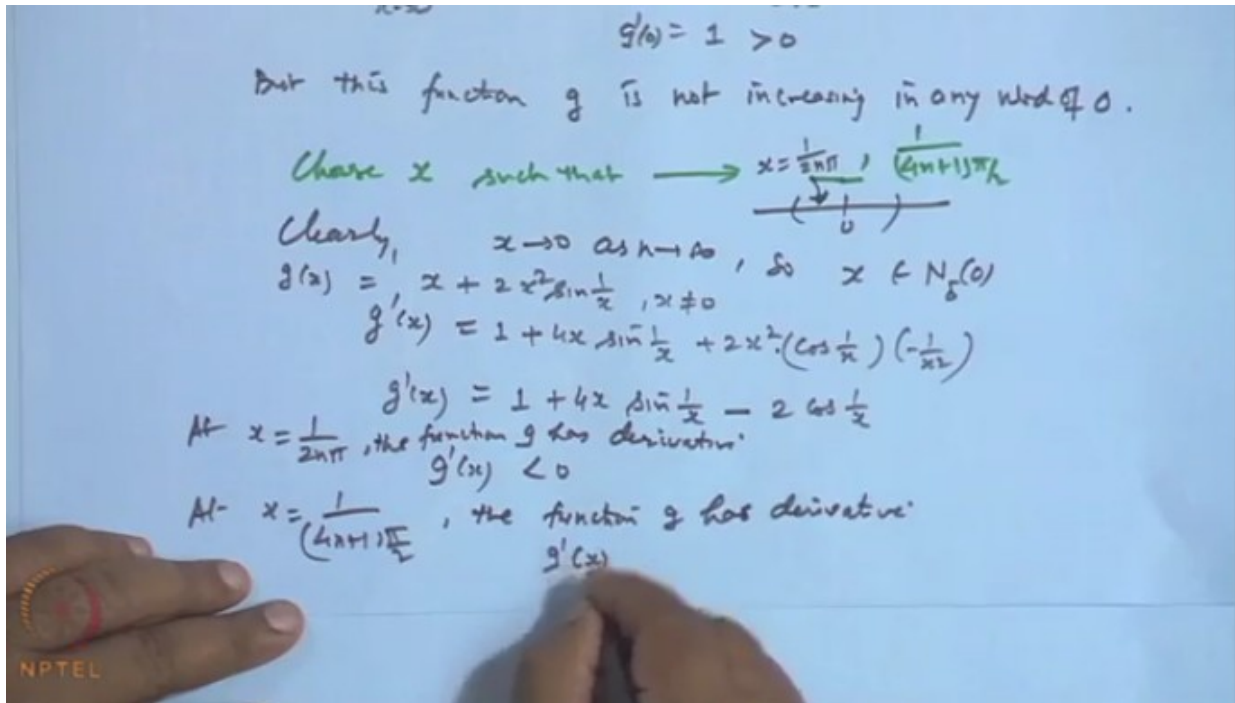 g'(0) = 1 > 0
But this function g is not increasing in any nbd of 0.
Choose x such that → x = 1/2nπ , 1/(4n+1)π/2
0
Clearly, x→0 as n→∞, so x ∈ N_δ(0)
g(x) = x + 2x² sin 1/x , x ≠ 0
g'(x) = 1 + 4x sin 1/x + 2x².(cos 1/x)(-1/x²)
g'(x) = 1 + 4x sin 1/x - 2 cos 1/x
At x = 1/2nπ , the function g has derivative
g'(x) < 0
At x = 1/(4n+1)π/2 , the function g has derivative
g'(x)
NPTEL